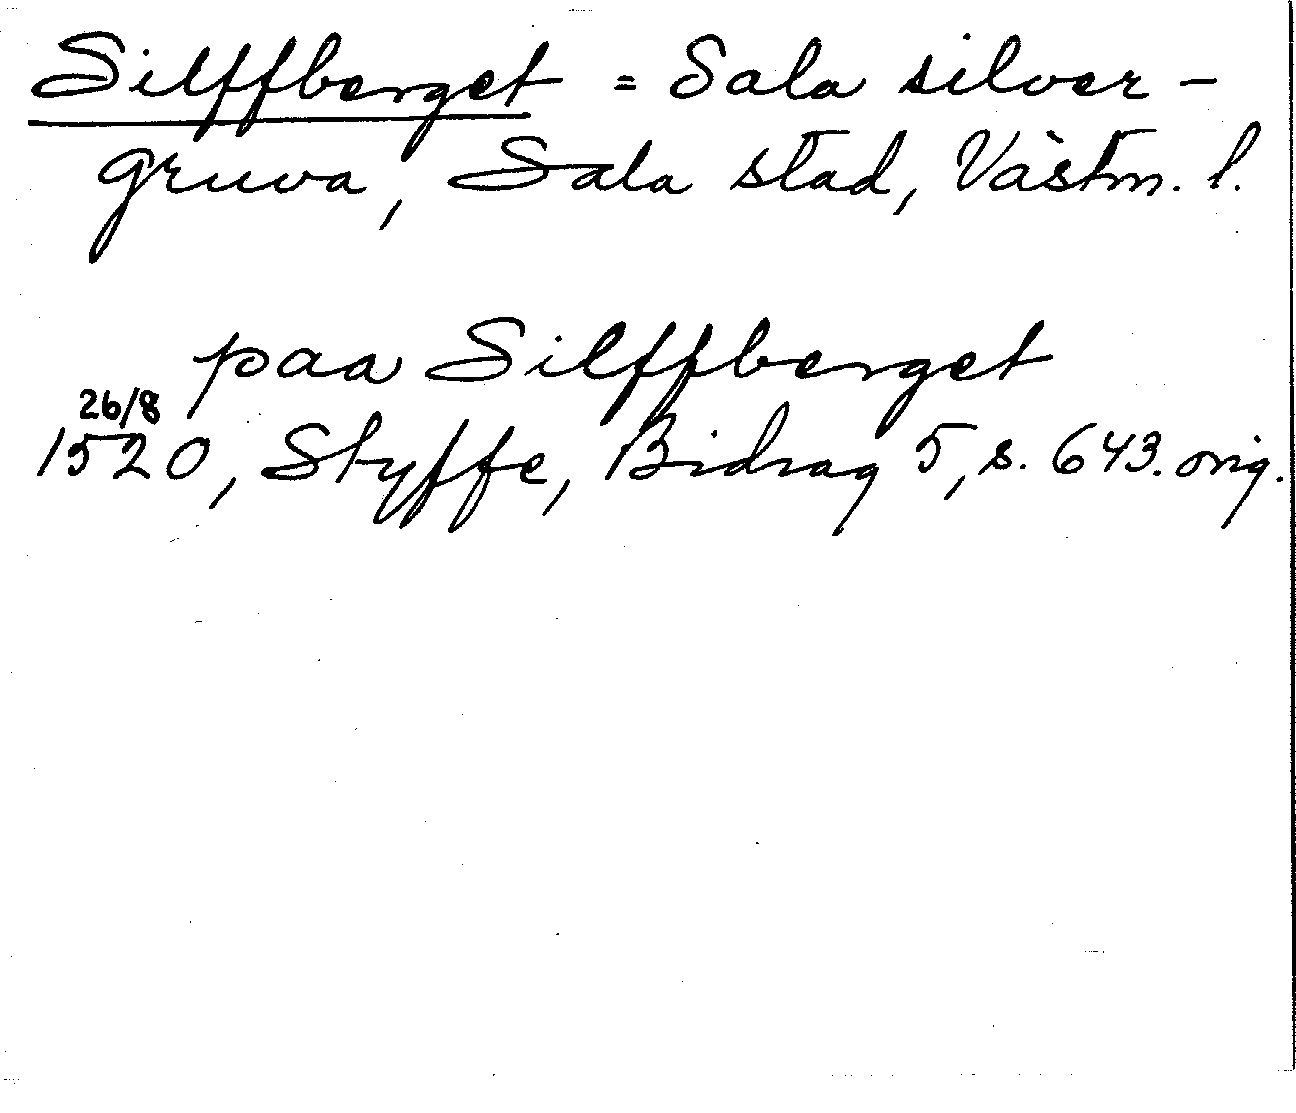 Silffberget = Sala silver-
gruva, Sala stad, Västm. l.
paa Silffberget
26/8
1520, Styffe, Bidrag 5, s. 643. orig.